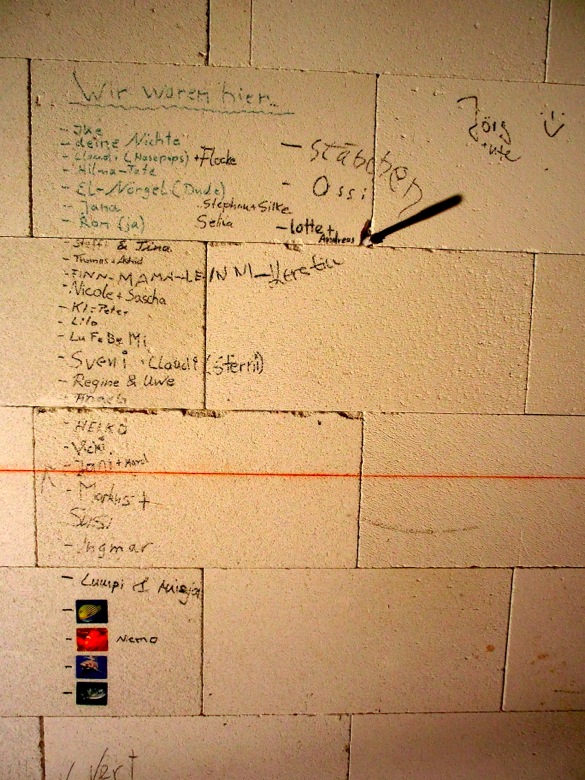 Wir waren hier.
- deine Nichte
- Claudi (Hasepups) + Flocke
- Hilma-Tate
- EL-Nörgel (Dude)
- Jana
- Ron (ja)
- Stäbchen
- Ossi
Stephan + Silke
Selina
- Lotte +
Andreas
Jörg
+ Ute
- Steffi & Tina
- Thomas + Astrid
- FINN-MAMA-LE/NNI-Kerstin
- Nicole + Sascha
- Kl.-Peter
- Lilo
- Lu Fe Be Mi
- Sveni + Claudi (Sterni)
- Regine & Uwe
- Angela
- HEIKO
- Vicki
- Jani + Marcl
- Markus +
Sussi
- Ingmar
- Lumpi &
- Niemo